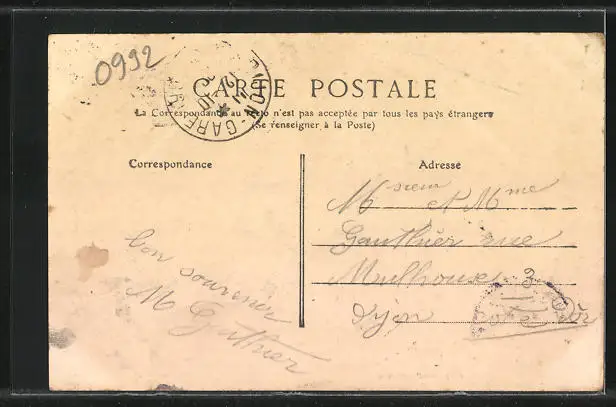 0992
CARTE POSTALE
DIJON-GARE
La Correspondance au recto n'est pas acceptée par tous les pays étrangers
(Se renseigner à la Poste)
Correspondance
Adresse
Msieur et Mme
Gauthier rue
Mulhouse 3
Dijon Côte d'Or
bon souvenir
M Gauthier